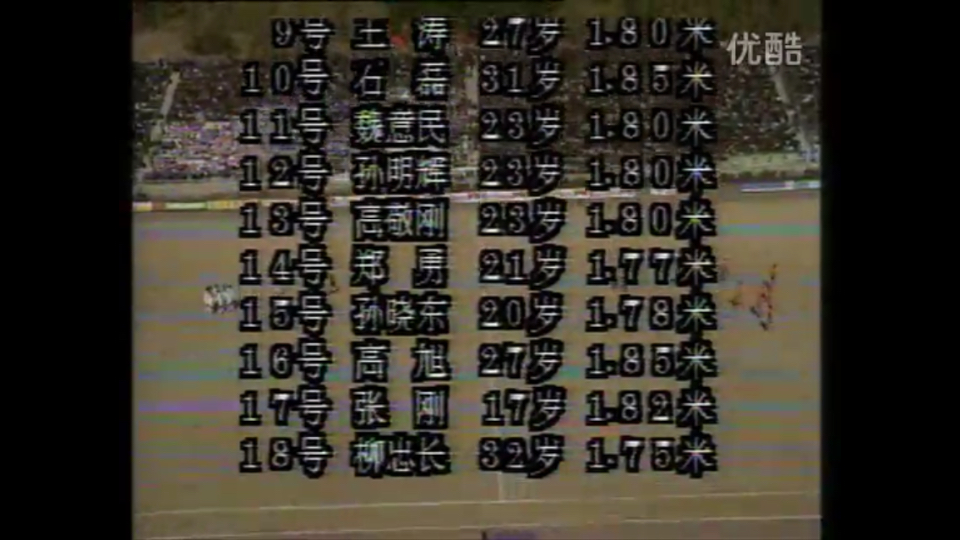 9号 王 涛 27岁 1.80米
优酷
10号 石 磊 31岁 1.85米
11号 魏意民 23岁 1.80米
12号 孙明辉 23岁 1.80米
13号 高敬刚 23岁 1.80米
14号 郑 勇 21岁 1.77米
15号 孙晓东 20岁 1.78米
16号 高 旭 27岁 1.85米
17号 张 刚 17岁 1.82米
18号 柳忠长 32岁 1.75米